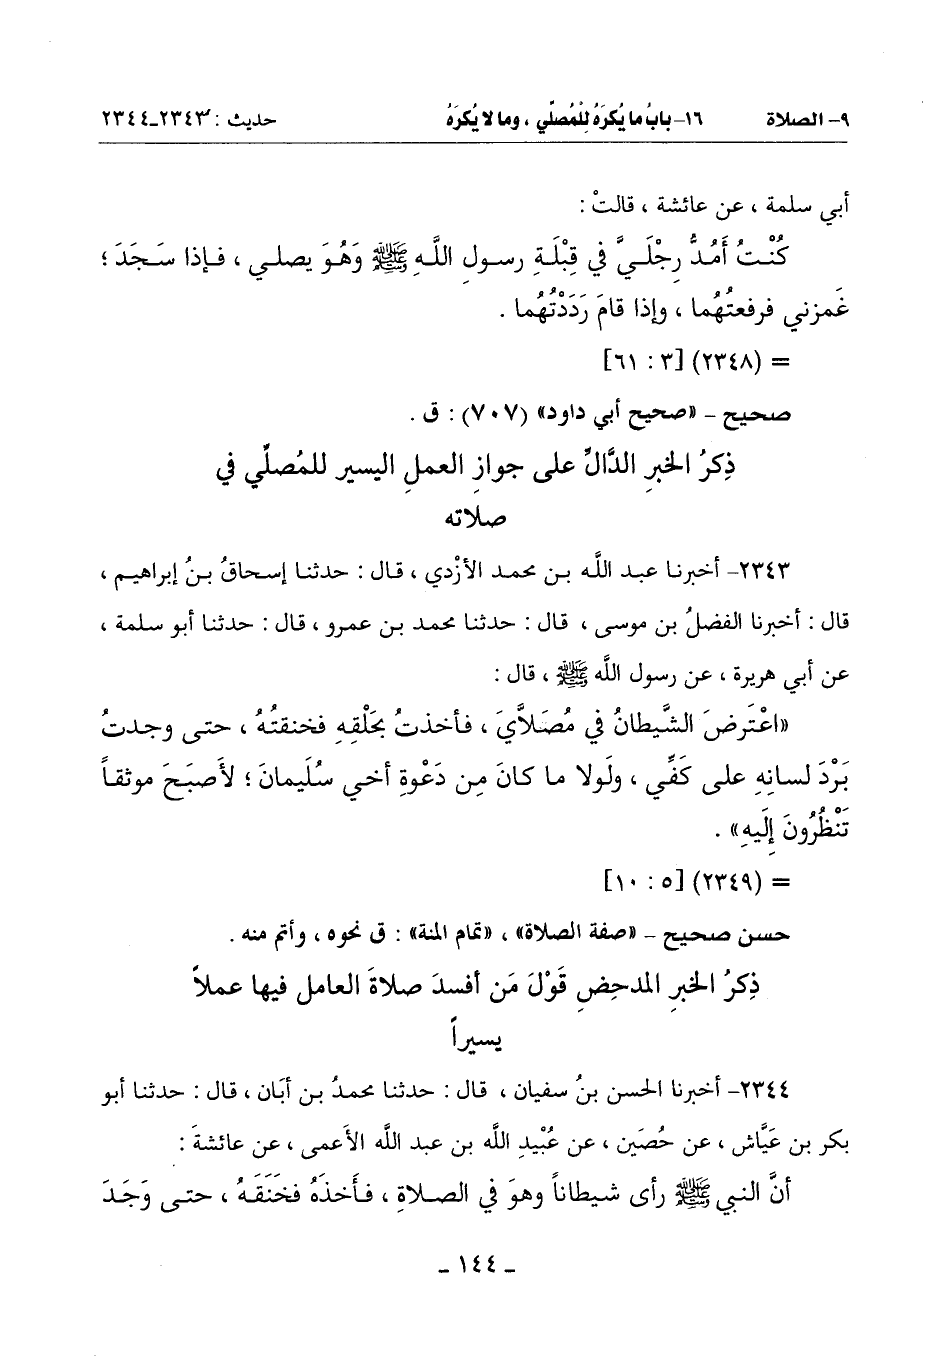 ٩- الصلاة ١٦- بابُ ما يُكرَهُ لِلْمُصلِّي ، وما لا يُكرَهُ حديث : ٢٣٤٣-٢٣٤٤
أبي سلمة ، عن عائشة ، قالتْ :
كُنْتُ أَمُدُّ رِجْلَيَّ في قِبْلَةِ رسولِ اللَّهِ ﷺ وَهُوَ يصلي ، فإذا سَجَدَ ؛
غَمزني فرفعتُهُما ، وإذا قامَ رَدَدْتُهُما .
= (٢٣٤٨) [٣ : ٦١]
صحيح - «صحيح أبي داود» (٧٠٧) : ق .
ذِكرُ الخبرِ الدَّالِّ على جوازِ العملِ اليسير للمُصلِّي في
صلاته
٢٣٤٣- أخبرنا عبد اللَّه بن محمد الأزْدي ، قال : حدثنا إسحاقُ بنُ إبراهيم ،
قال : أخبرنا الفضلُ بن موسى ، قال : حدثنا محمد بن عمرو ، قال : حدثنا أبو سلمة ،
عن أبي هريرة ، عن رسول اللَّه ﷺ ، قال :
«اعْتَرضَ الشَّيطانُ في مُصَلاَّيَ ، فأخذتُ بحَلْقِهِ فخنقتُهُ ، حتى وجدتُ
بَرْدَ لسانِهِ على كَفِّي ، ولَولا ما كانَ مِن دَعْوةِ أخي سُلَيمانَ ؛ لأَصبَحَ موثقاً
تَنْظُرُونَ إِلَيهِ» .
= (٢٣٤٩) [٥ : ١٠]
حسن صحيح - «صفة الصلاة» ، «تمام المنة» : ق نحوه ، وأتم منه .
ذِكرُ الخبرِ المدحِضِ قَوْلَ مَن أفسدَ صلاةَ العامل فيها عملاً
يسيراً
٢٣٤٤- أخبرنا الحسن بنُ سفيان ، قال : حدثنا محمدُ بن أبَان ، قال : حدثنا أبو
بكر بن عَيَّاش ، عن حُصَين ، عن عُبَيدِ اللَّه بن عبد اللَّه الأعمى ، عن عائشةَ :
أنَّ النبي ﷺ رأى شيطاناً وهوَ في الصلاةِ ، فأَخذَهُ فخَنَقَهُ ، حتى وَجَدَ
- ١٤٤ -